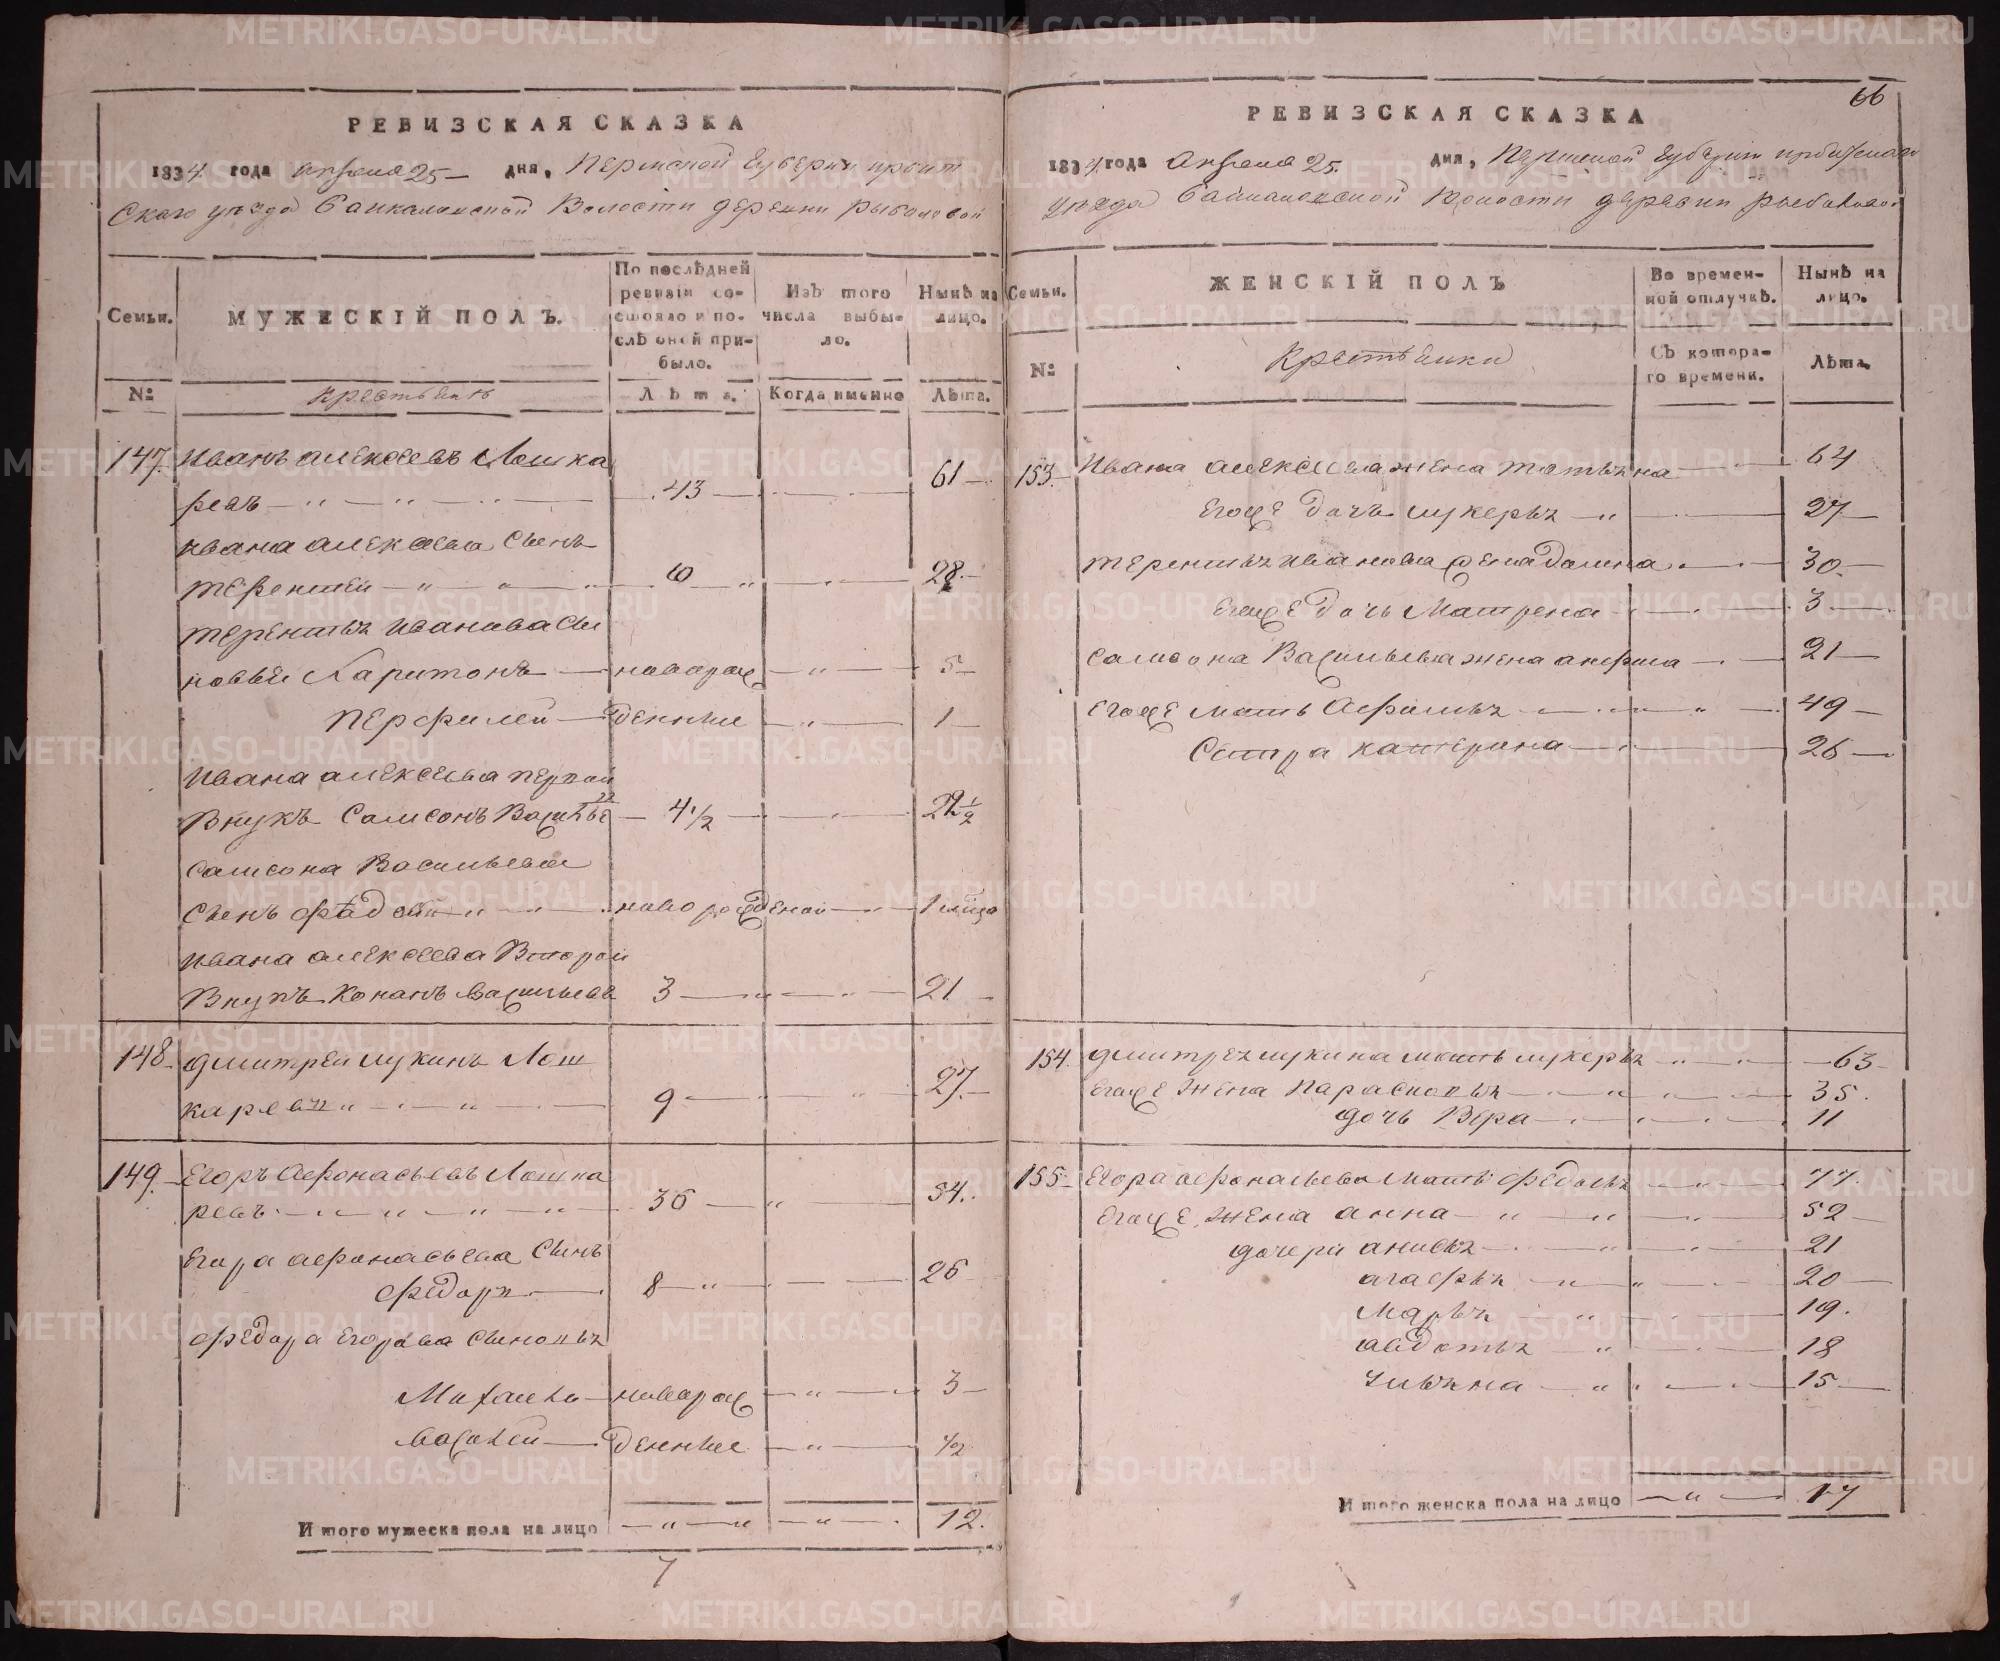 РЕВИЗСКАЯ СКАЗКА
1834 года апреля 25 дня, Пермской Губернии ирбит
Скаго уезда баикаловской Волости деревни рыболовой
Семьи. МУЖЕСКІЙ ПОЛЪ. По послѣдней ревизіи состояло и послѣ оной прибыло. Изъ того числа выбыло. Нынѣ на лицо.
№ крестьянъ Лѣта. Когда именно Лѣта.
147. иванъ алексеевъ Лошка
ревъ 43 61
ивана алексеева сынъ
терентей 10 28
терентья иванова сы
новьи Харитонъ новорож 5
перфилей денныи 1
ивана алексеева первой
Внукъ Самсонъ Васильевъ 4 1/2 22 1/2
самсона Васильева
сынъ фадей новорожденой 1
ивана алексеева Второй
Внукъ Конанъ Васильевъ 3 21
148 дмитреи лукинъ Лош
каревъ 9 27
149. Егоръ Афонасьевъ Лошка
ревъ 36 54
Егора афонасьева Сынъ
федоръ 8 26
федора Егорова Сыновья
Михаило новорож 3
Василей денныи 1/2
Итого мужеска пола на лицо 12.
7
66
РЕВИЗСКАЯ СКАЗКА
1834 года апреля 25 дня, Пермской Губернии ирбитскаго
уезда баикаловской Волости деревни рыболово
Семьи. ЖЕНСКІЙ ПОЛЪ Во временной отлучкѣ. Нынѣ на лицо.
№ Крестьянки Съ котораго времени. Лѣта.
153. Ивана алексеева жена татьяна 64
Егоже дочь лукерья 27
терентья иванова жена домна 30
Егоже дочь Матрена 3
самсона Васильева жена анфиса 21
егоже мать Афимья 49
Сестра катерина 26
154. дмитрея лукина мать лукерья 63
Егоже жена парасковья 35
дочь Вера 11
155 Егора афонасьева мать федосья 77
Егоже жена анна 52
дочери анисья 21
агафья 20
Марья 19
авдотья 18
ульяна 15
Итого женска пола на лицо 17
METRIKI.GASO-URAL.RU